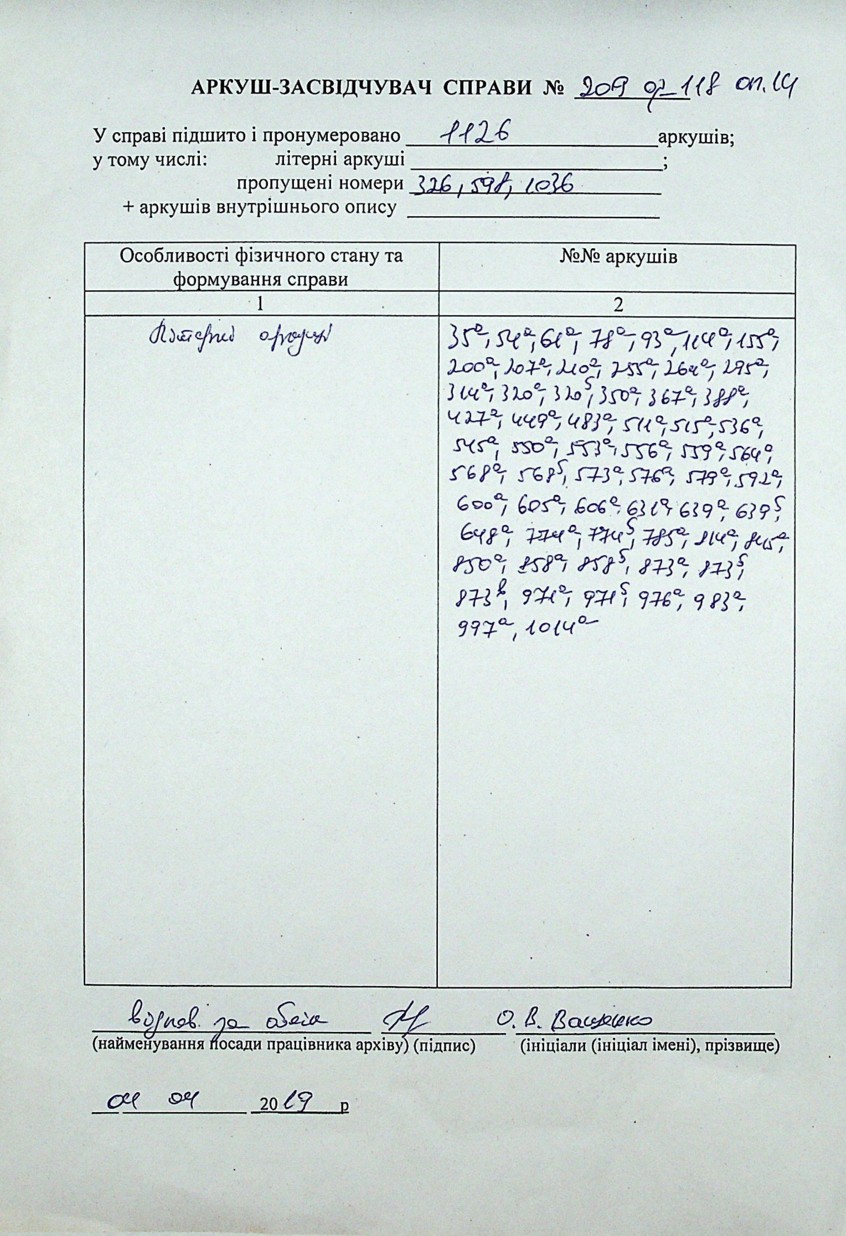 АРКУШ-ЗАСВІДЧУВАЧ СПРАВИ № 209 ф 118 оп.14
У справі підшито і пронумеровано 1126 аркушів;
у тому числі: літерні аркуші ;
пропущені номери 326, 598, 1036
+ аркушів внутрішнього опису
Особливості фізичного стану та формування справи
№№ аркушів
1
2
Літерні аркуші
35а, 54а, 61а, 78а, 93а, 114а, 155а,
200а, 207а, 210а, 255а, 264а, 295а,
314а, 320а, 320б, 350а, 367а, 388а,
427а, 449а, 483а, 511а, 515а, 536а,
545а, 550а, 553а, 556а, 559а, 564а,
568а, 568б, 573а, 576а, 579а, 592а,
600а, 605а, 606а, 631а, 639а, 639б,
648а, 774а, 774б, 785а, 814а, 845а,
850а, 858а, 858б, 873а, 873б,
873в, 971а, 971б, 976а, 983а,
997а, 1014а
відпов. за облік О. В. Ващенко
(найменування посади працівника архіву) (підпис) (ініціали (ініціал імені), прізвище)
04 04 2019 р